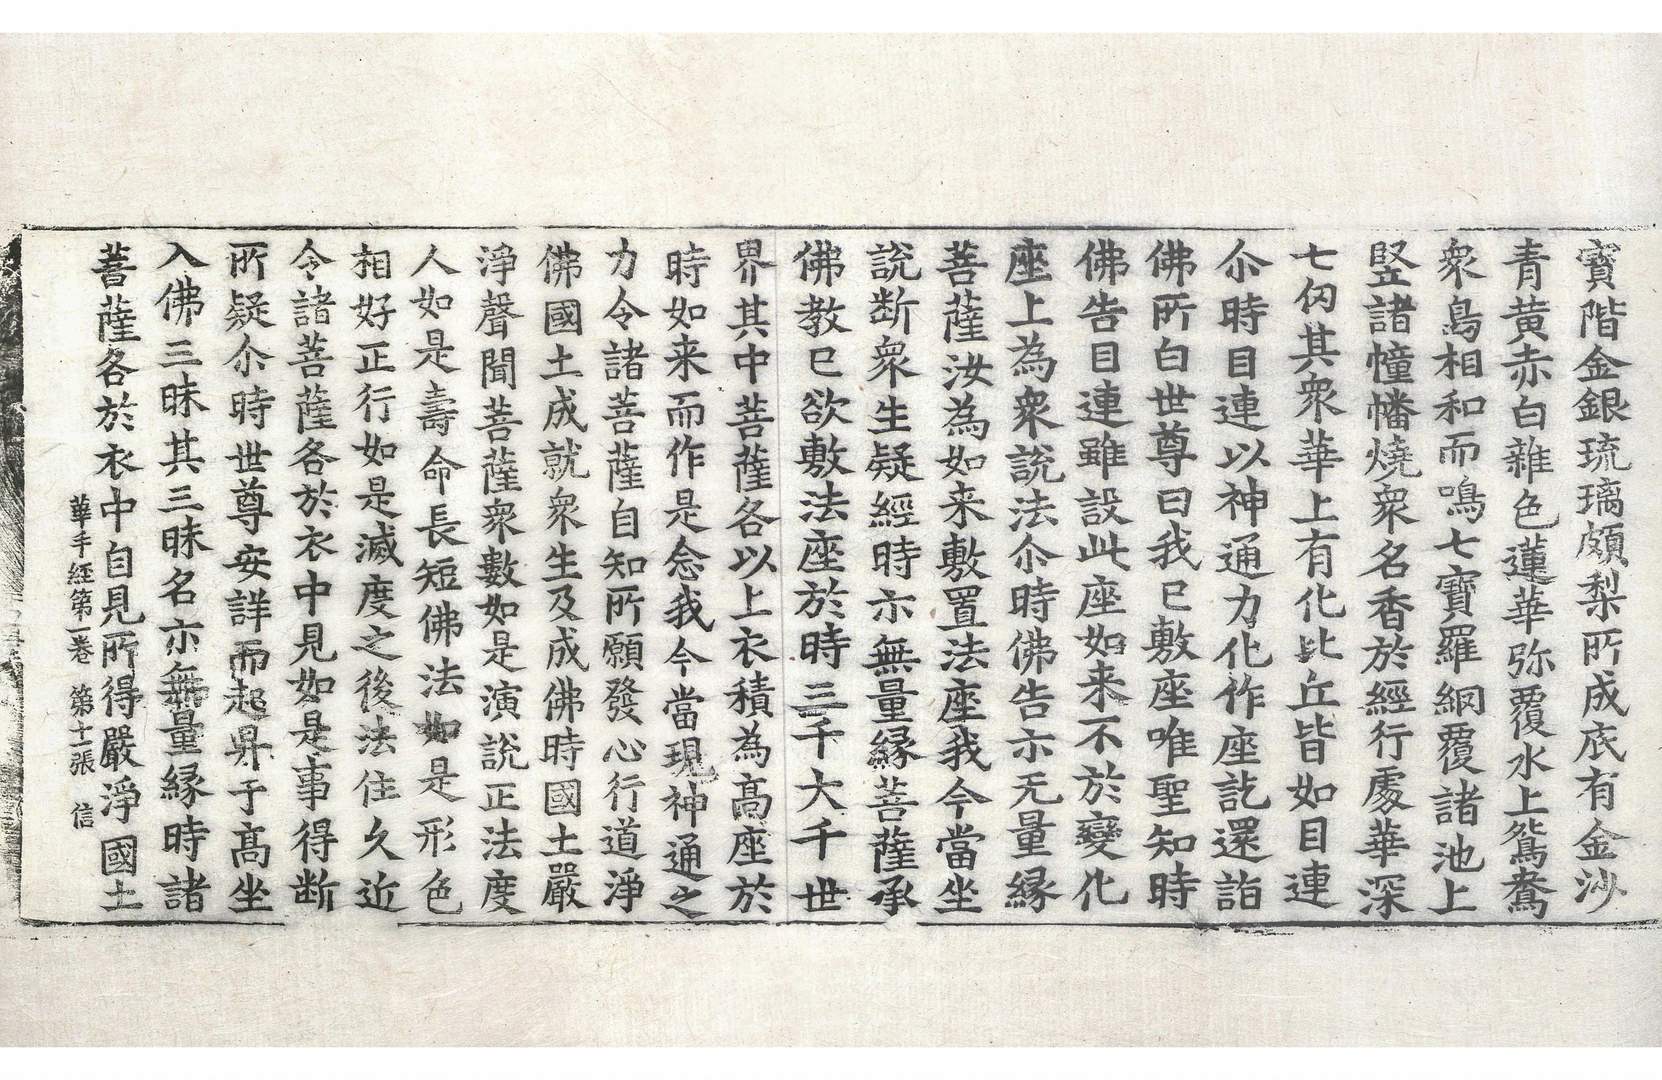 寶階金銀琉璃頗梨所成底有金沙
青黃赤白雜色蓮華弥覆水上鴛鴦
衆鳥相和而鳴七寶羅網覆諸池上
竪諸幢幡燒衆名香於經行處華深
七仞其衆華上有化比丘皆如目連
尒時目連以神通力化作座訖還詣
佛所白世尊曰我已敷座唯聖知時
佛告目連雖設此座如来不於變化
座上為衆説法尒時佛告亦无量緣
菩薩汝為如来敷置法座我今當坐
説斷衆生疑經時亦無量緣菩薩承
佛教已欲敷法座於時三千大千世
界其中菩薩各以上衣積為高座於
時如来而作是念我今當現神通之
力令諸菩薩自知所願發心行道淨
佛國土成就衆生及成佛時國土嚴
淨聲聞菩薩衆數如是演説正法度
人如是壽命長短佛法如是形色
相好正行如是滅度之後法住久近
令諸菩薩各於衣中見如是事得斷
所疑尒時世尊安詳而起昇于高坐
入佛三昧其三昧名亦無量緣時諸
菩薩各於衣中自見所得嚴淨國土
華手經第一卷 第十一張 信